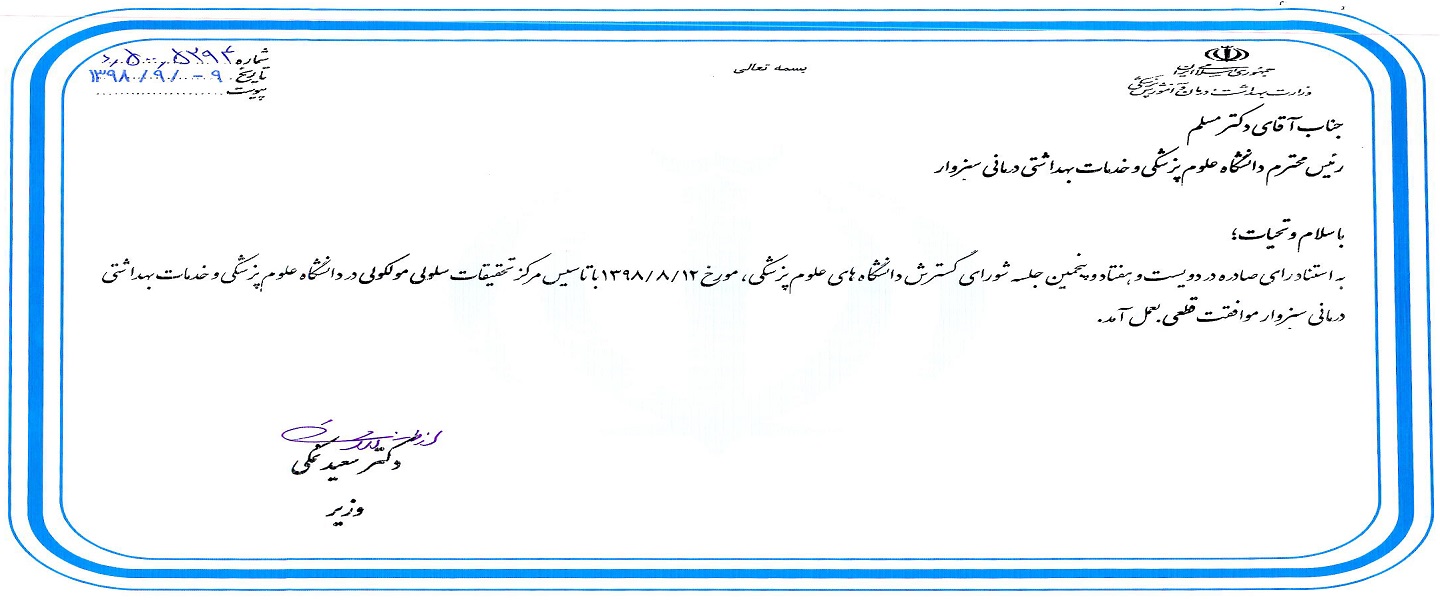 بسمه تعالی
جمهوری اسلامی ایران
وزارت بهداشت، درمان و آموزش پزشکی
شماره
تاریخ ۱۳۹۸/۹/۰۹
پیوست
جناب آقای دکتر مسلم
رئیس محترم دانشگاه علوم پزشکی و خدمات بهداشتی درمانی سبزوار
با سلام و تحیات؛
به استناد رای صادره در دویست و هفتاد و پنجمین جلسه شورای گسترش دانشگاه های علوم پزشکی، مورخ ۱۳۹۸/۸/۱۲ با تاسیس مرکز تحقیقات سلولی مولکولی در دانشگاه علوم پزشکی و خدمات بهداشتی
درمانی سبزوار موافقت قطعی بعمل آمد.
دکتر سعید نمکی
وزیر